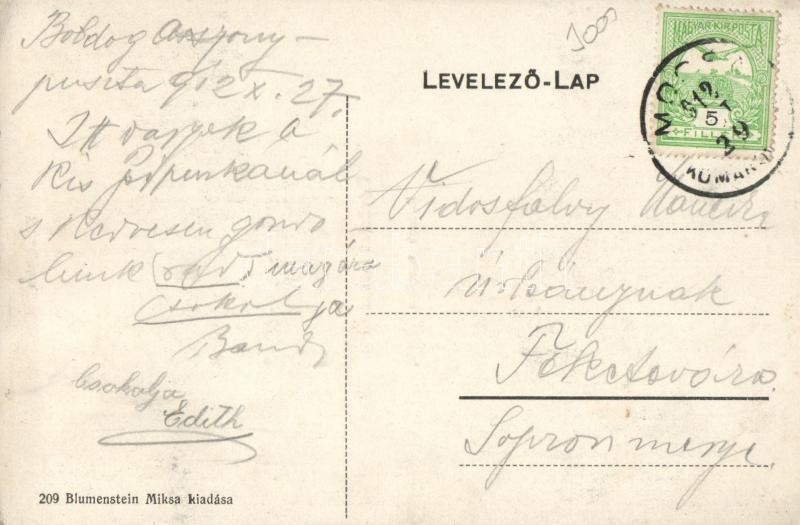 Boldog asszony –
puszta 912 X. 27.
Itt vagyok a
kis
s kedvesen gondo
lunk magára
csokolja
Bandi
Csokolja
Edith
209 Blumenstein Miksa kiadása
LEVELEZŐ-LAP
MAGYAR KIR. POSTA
5
FILLÉR
MOCS
912
29
KOMÁR
Vidosfalvy
úrleánynak
Feketevára
Sopron megye